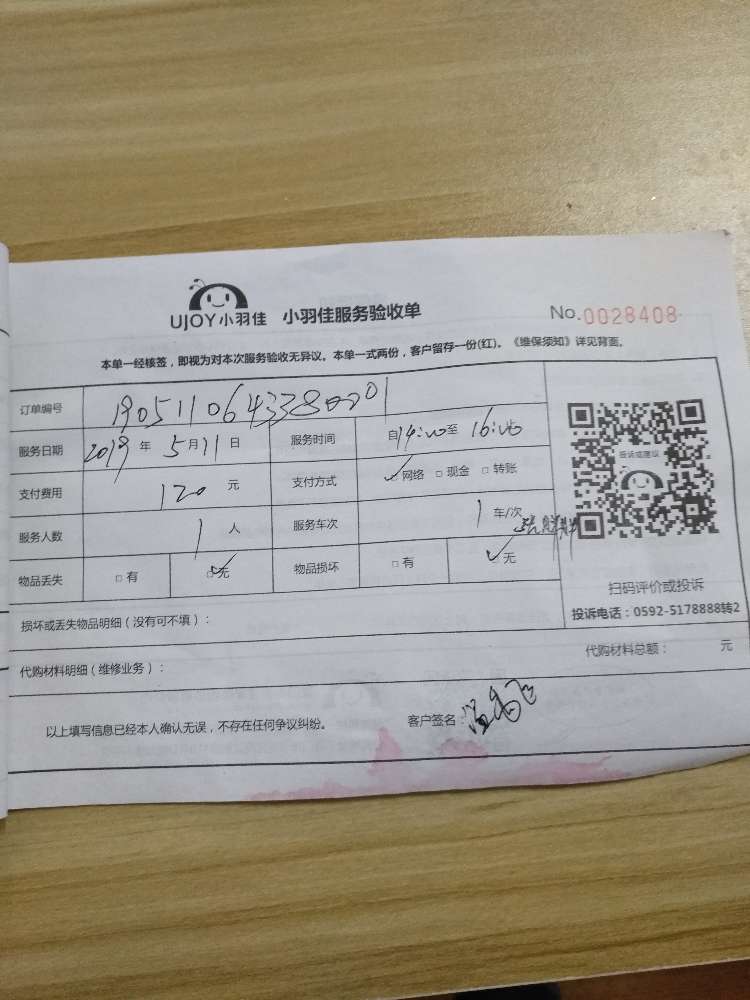 UJOY小羽佳 小羽佳服务验收单 No.0028408
本单一经核签，即视为对本次服务验收无异议。本单一式两份，客户留存一份(红)。《维保须知》详见背面。
订单编号 19051106433800201
服务日期 2019 年 5 月 11 日 服务时间 自14:00至 16:00
支付费用 120 元 支付方式 ✓网络 □ 现金 □ 转账
服务人数 1 人 服务车次 1 车/次
物品丢失 □ 有 ✓无 物品损坏 □ 有 ✓无
投诉或建议
扫码评价或投诉
投诉电话：0592-5178888转2
损坏或丢失物品明细（没有可不填）：
代购材料明细（维修业务）： 代购材料总额： 元
以上填写信息已经本人确认无误，不存在任何争议纠纷。 客户签名：